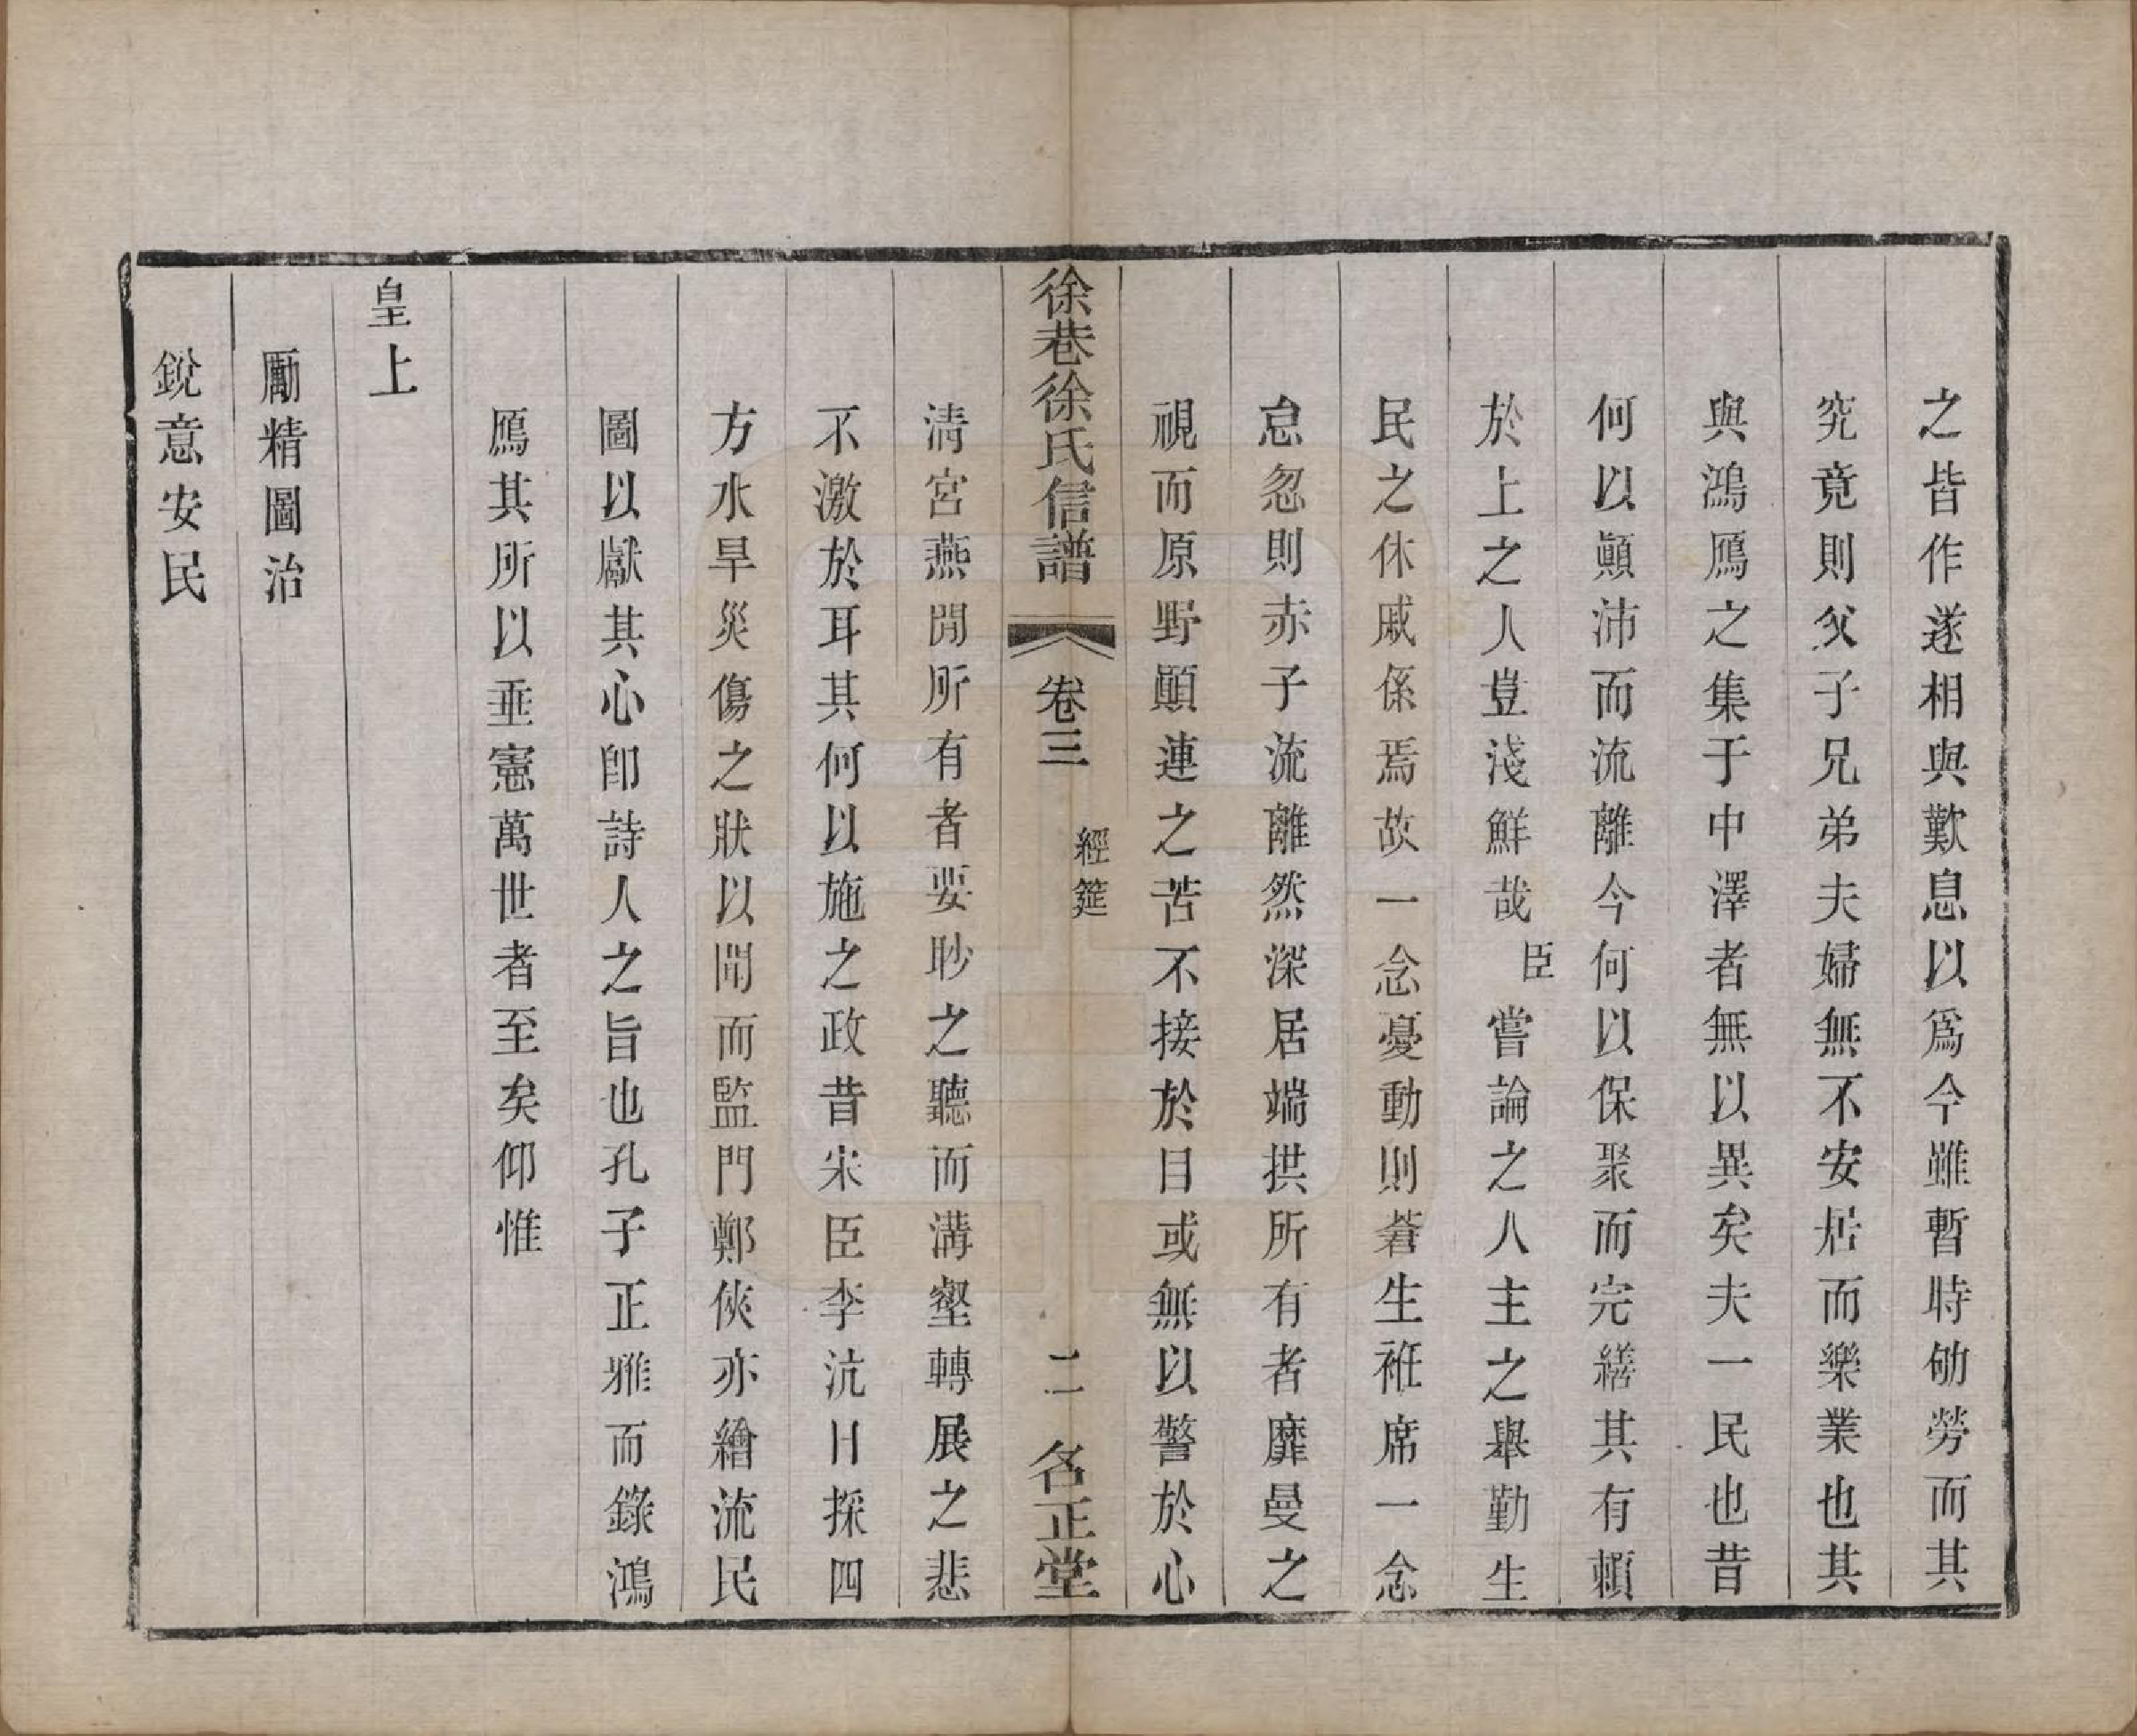 之皆作遂相與歎息以爲今雖暫時劬勞而其
究竟則父子兄弟夫婦無不安居而樂業也其
與鴻鴈之集于中澤者無以異矣夫一民也昔
何以顚沛而流離今何以保聚而完繕其有賴
於上之人豈淺鮮哉臣嘗論之人主之舉動生
民之休戚係焉故一念憂動則蒼生袵席一念
怠忽則赤子流離然深居端拱所有者靡曼之
視而原野顚連之苦不接於目或無以警於心
徐巷徐氏信譜 卷三 經筵 二 名正堂
淸宮燕閒所有者要眇之聽而溝壑轉展之悲
不激於耳其何以施之政昔宋臣李沆日採四
方水旱災傷之狀以聞而監門鄭俠亦繪流民
圖以獻其心卽詩人之旨也孔子正雅而錄鴻
鴈其所以垂憲萬世者至矣仰惟
皇上
勵精圖治
銳意安民